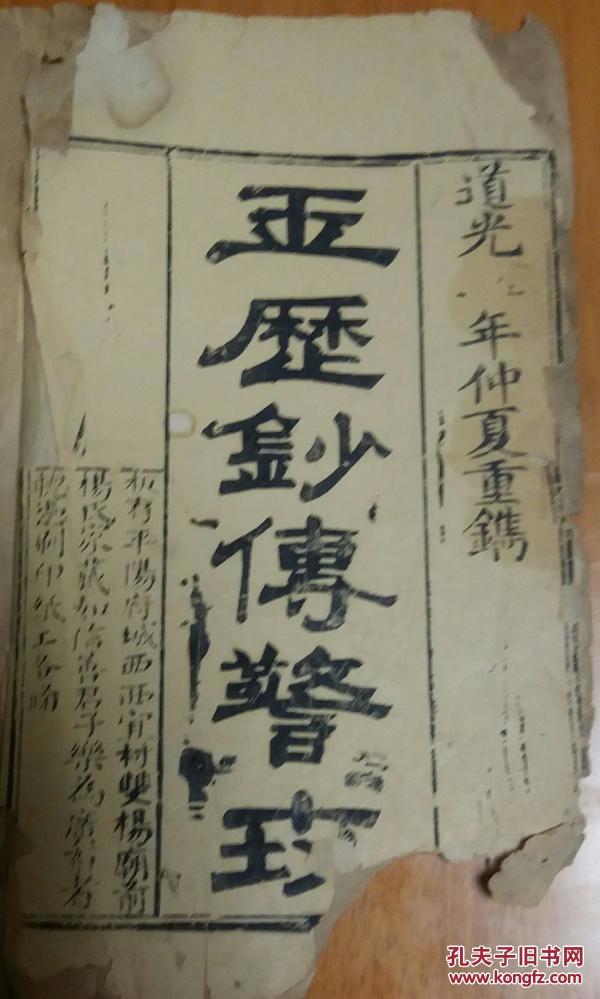 道光 年仲夏重鐫
玉歷鈔傳警
板存平陽府城西西宜村雙楊廟前
楊氏家藏如信善君子樂為廣布者
印紙工
孔夫子旧书网
www.kongfz.com